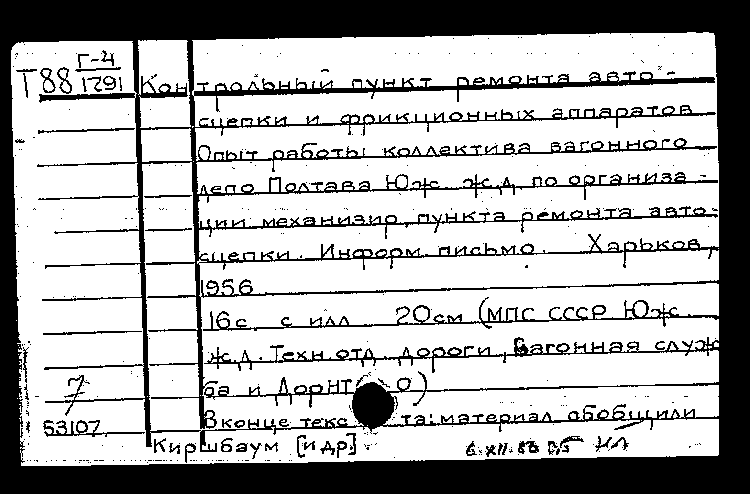 Г-4
Т88 1291 Контрольный пункт ремонта авто-
сцепки и фрикционных аппаратов
Опыт работы коллектива вагонного
депо Полтава Юж. ж.д. по организа-
ции механизир. пункта ремонта авто-
сцепки. Информ. письмо. Харьков,
1956.
16с. с илл. 20см (МПС СССР Юж.
ж.д. Техн. отд. дороги, Вагонная служ
ба и ДорНТО)
7
В конце текста: материал обобщили
53107
Киршбаум [и др].
6.XII.56